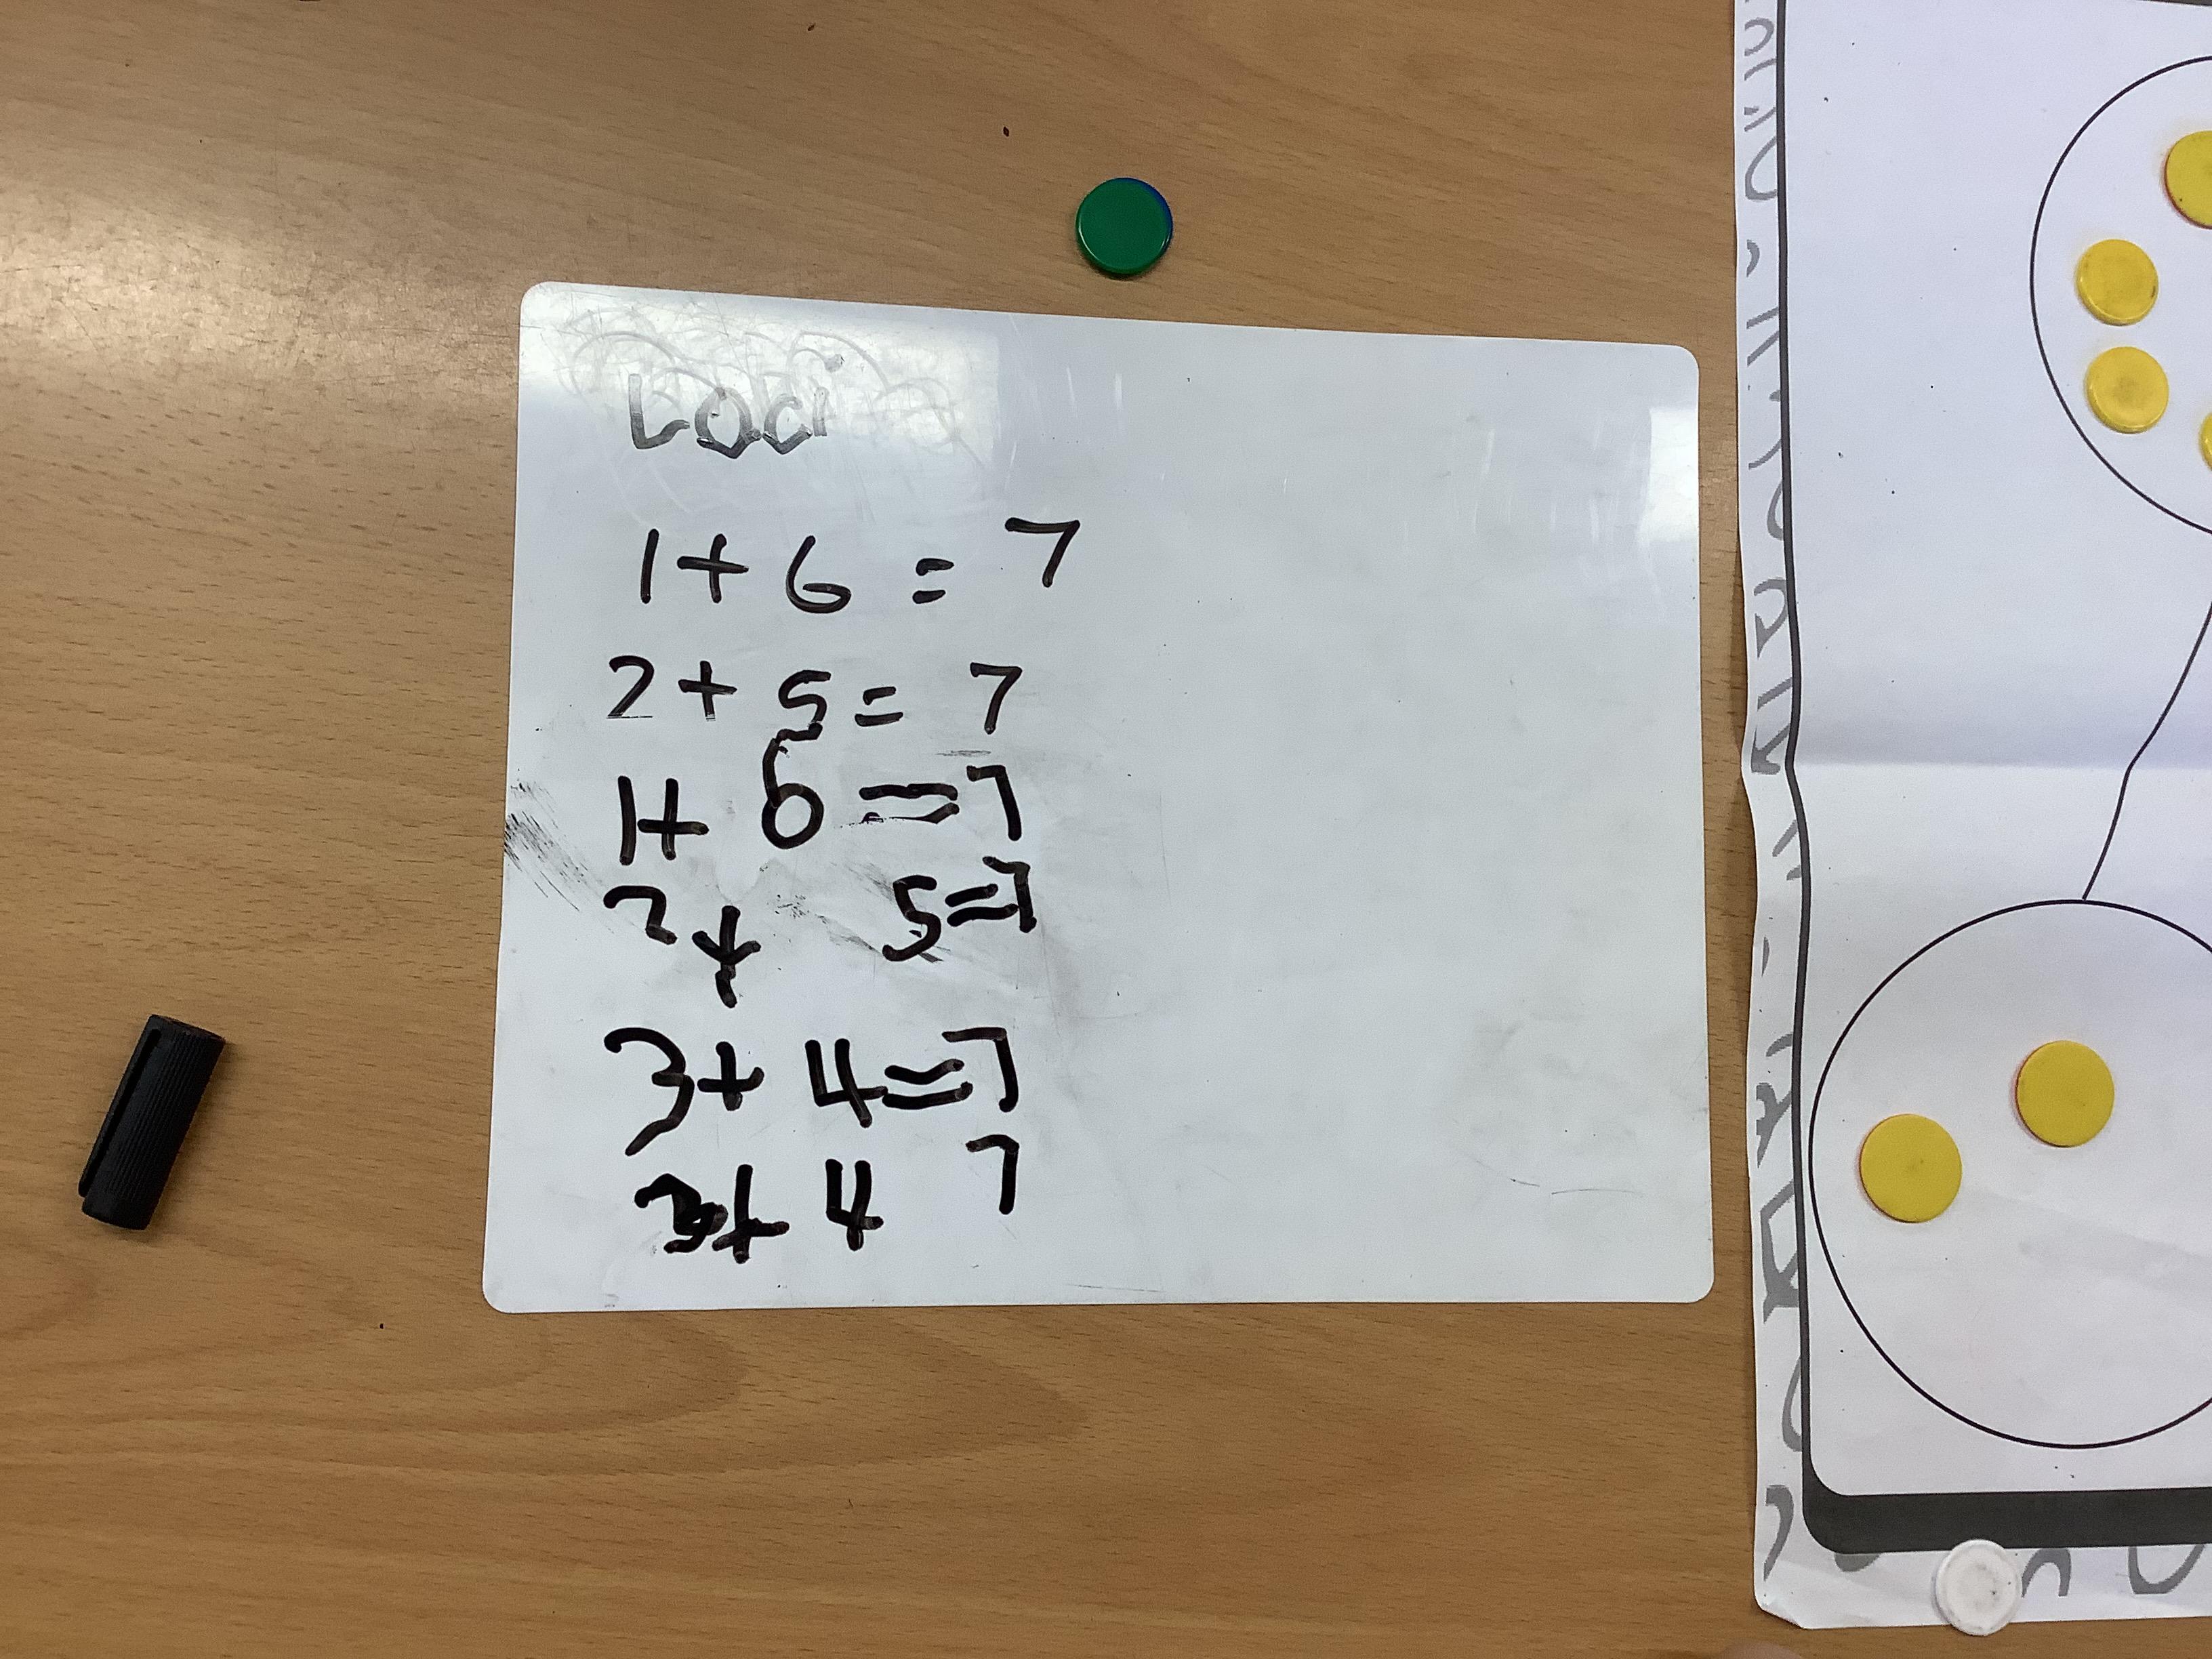 Loci
1 + 6 = 7
2 + 5 = 7
1 + 6 = 7
2 + 5 = 7
3 + 4 = 7
3 + 4 7